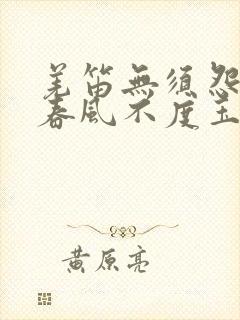 羌笛無須怨
春風不度玉
黃原亮